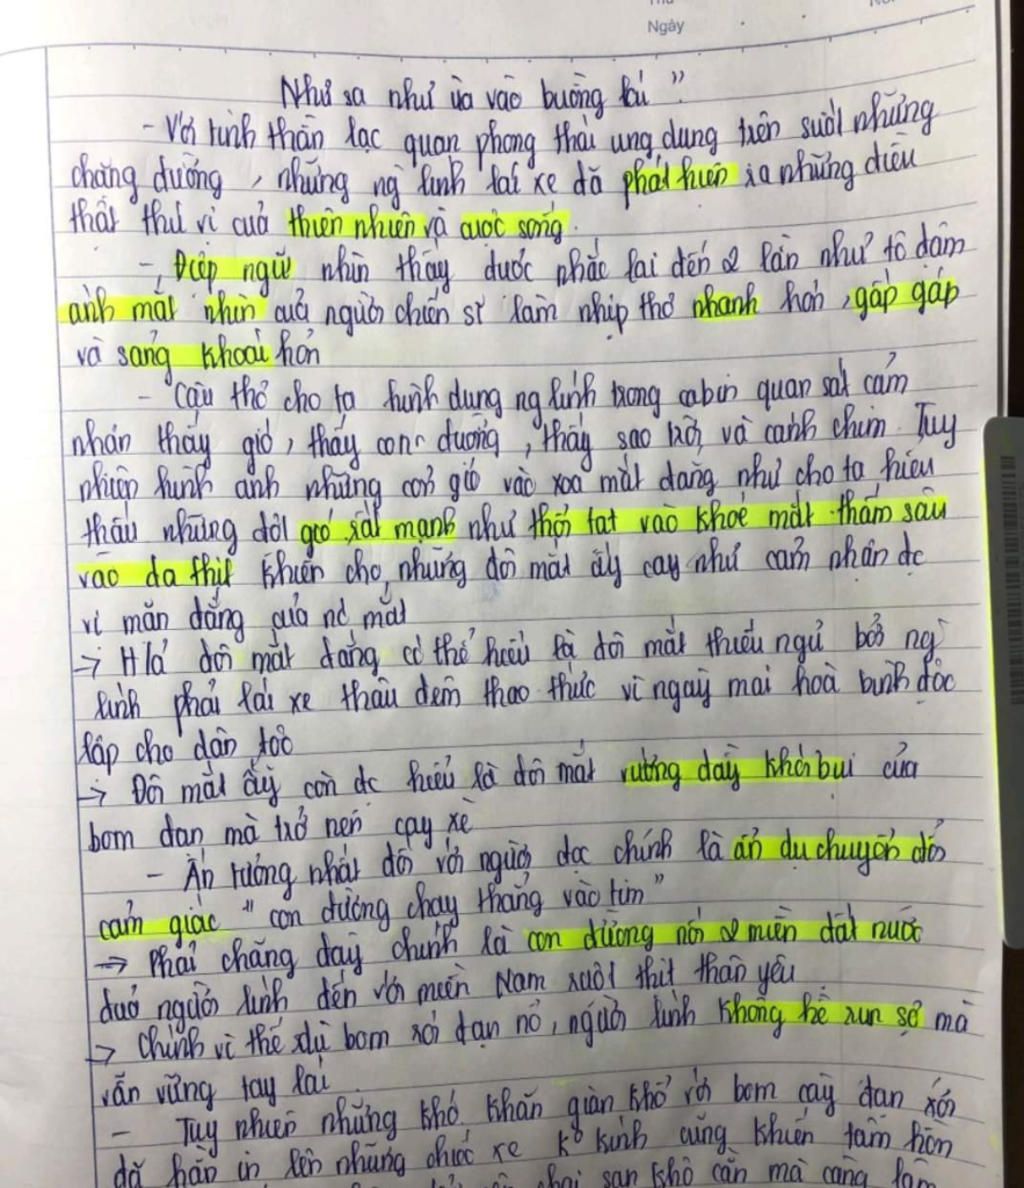 Ngày
Như sa như ùa vào buồng lái".
- Với tinh thần lạc quan phong thái ung dung trên suốt những
chặng đường, những ng lính lái xe đã phát hiện ra những điều
thật thú vị của thiên nhiên và cuộc sống.
- Điệp ngữ nhìn thấy được nhắc lại đến 2 lần như tô đậm
ánh mắt nhìn của người chiến sĩ làm nhịp thơ nhanh hơn, gấp gáp
và sảng khoái hơn
- Câu thơ cho ta hình dung ng lính trong cabin quan sát cảm
nhận thấy gió, thấy con đường, thấy sao trời và cánh chim. Tuy
nhiên hình ảnh những cơn gió vào xoa mắt đắng như cho ta hiểu
thấu những đợt gió rất mạnh như thổi tạt vào khoé mắt thấm sâu
vào da thịt khiến cho những đôi mắt ấy cay như cảm nhận dc
vị mặn đắng của nc mắt
→ H/á đôi mắt đắng có thể hiểu là đôi mắt thiếu ngủ bởi ng
lính phải lái xe thâu đêm thao thức vì ngày mai hoà bình độc
lập cho dân tộc
→ Đôi mắt ấy còn dc hiểu là đôi mắt vương đầy khói bụi của
bom đạn mà trở nên cay xè
- Ấn tượng nhất đối với người đọc chính là ẩn dụ chuyển đổi
cảm giác " con đường chạy thẳng vào tim"
→ Phải chăng đây chính là con đường nối 2 miền đất nước
đưa người lính đến với miền Nam ruột thịt thân yêu
→ Chính vì thế dù bom rơi đạn nổ, người lính không hề run sợ mà
vẫn vững tay lái
- Tuy nhiên những khó khăn gian khổ với bom cày đạn xới
đã hằn in lên những chiếc xe k° kính cũng khiến tâm hồn
khô cằn mà càng làm